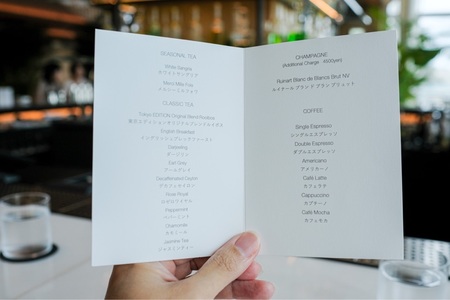 SEASONAL TEA
White Sangria
ホワイトサングリア
CLASSIC TEA
Tokyo EDITION Original Blend Rooibos
東京エディションオリジナルブレンドルイボス
English Breakfast
イングリッシュブレックファースト
Darjeeling
ダージリン
Earl Grey
アールグレイ
Decaffeinated Ceylon
Rose Royal
ローズロワイヤル
Peppermint
ペパーミント
Chamomile
カモミール
Jasmine Tea
ジャスミンティー
CHAMPAGNE
(Additional Charge 4500yen)
Ruinart Blanc de Blancs Brut NV
ルイナール ブラン ド ブラン ブリュット
COFFEE
Single Espresso
シングルエスプレッソ
Double Espresso
ダブルエスプレッソ
Americano
アメリカーノ
Café Latte
カフェラテ
Cappuccino
カプチーノ
Café Mocha
カフェモカ